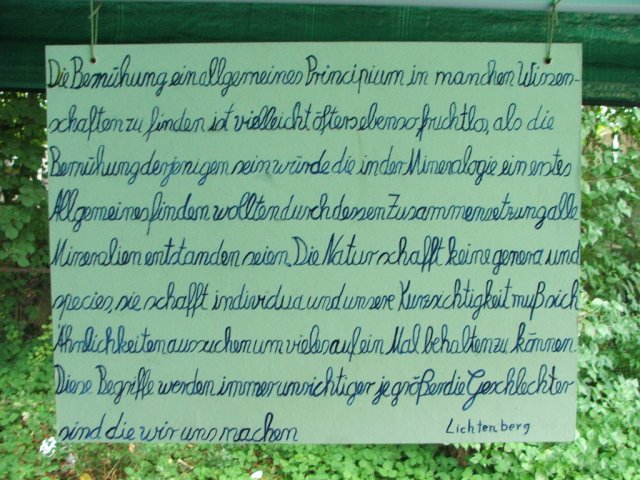 Die Bemühung ein allgemeines Principium in manchen Wissen-
schaften zu finden ist vielleicht öfters ebenso fruchtlos, als die
Bemühung derjenigen sein würde die in der Mineralogie ein erstes
Allgemeines finden wollten durch dessen Zusammensetzung alle
Mineralien entstanden seien. Die Natur schafft keine genera und
species, sie schafft individua und unsere Kurzsichtigkeit muß sich
Ähnlichkeiten aussuchen um vieles auf ein Mal behalten zu können.
Diese Begriffe werden immer unrichtiger je größer die Geschlechter
sind die wir uns machen
Lichtenberg